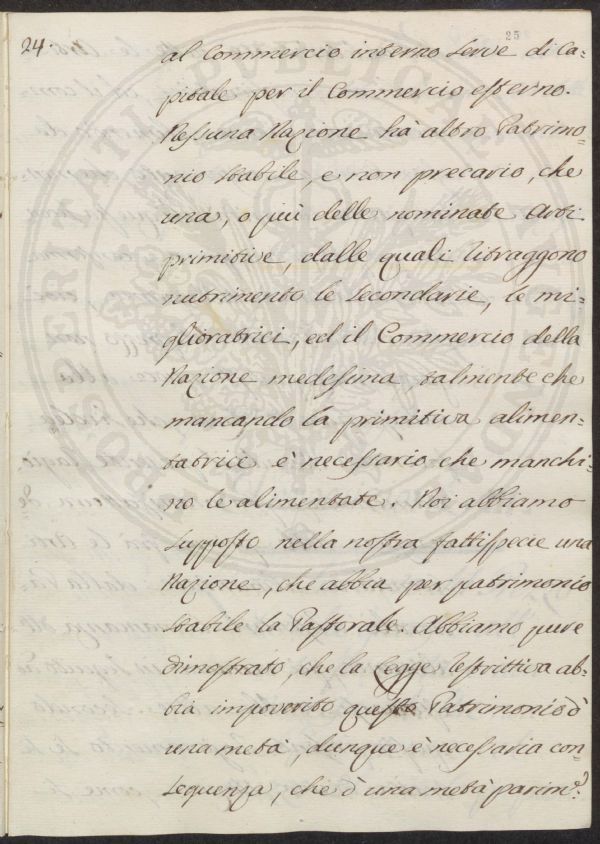 24.
25
al Commercio interno serve di Ca-
pitale per il Commercio esterno.
Nessuna Nazione há altro Patrimo-
nio stabile, e non precario, che
una, o più delle nominate Arti
primitive, dalle quali ritraggono
nutrimento le secondarie, le mi-
glioratrici, ed il Commercio della
Nazione medesima talmente che
mancando la primitiva alimen-
tatrice è necessario che manchi-
no le alimentate. Noi abbiamo
supposto nella nostra fattispecie una
Nazione, che abbia per patrimonio
stabile la Pastorale. Abbiamo pure
dimostrato, che la Legge restrittiva ab-
bia impoverito questo Patrimonio d'
una metà, dunque è necessaria con-
sequenza, che d'una metà parim.
PROSPERITATI PUBLICAE AUGENDAE